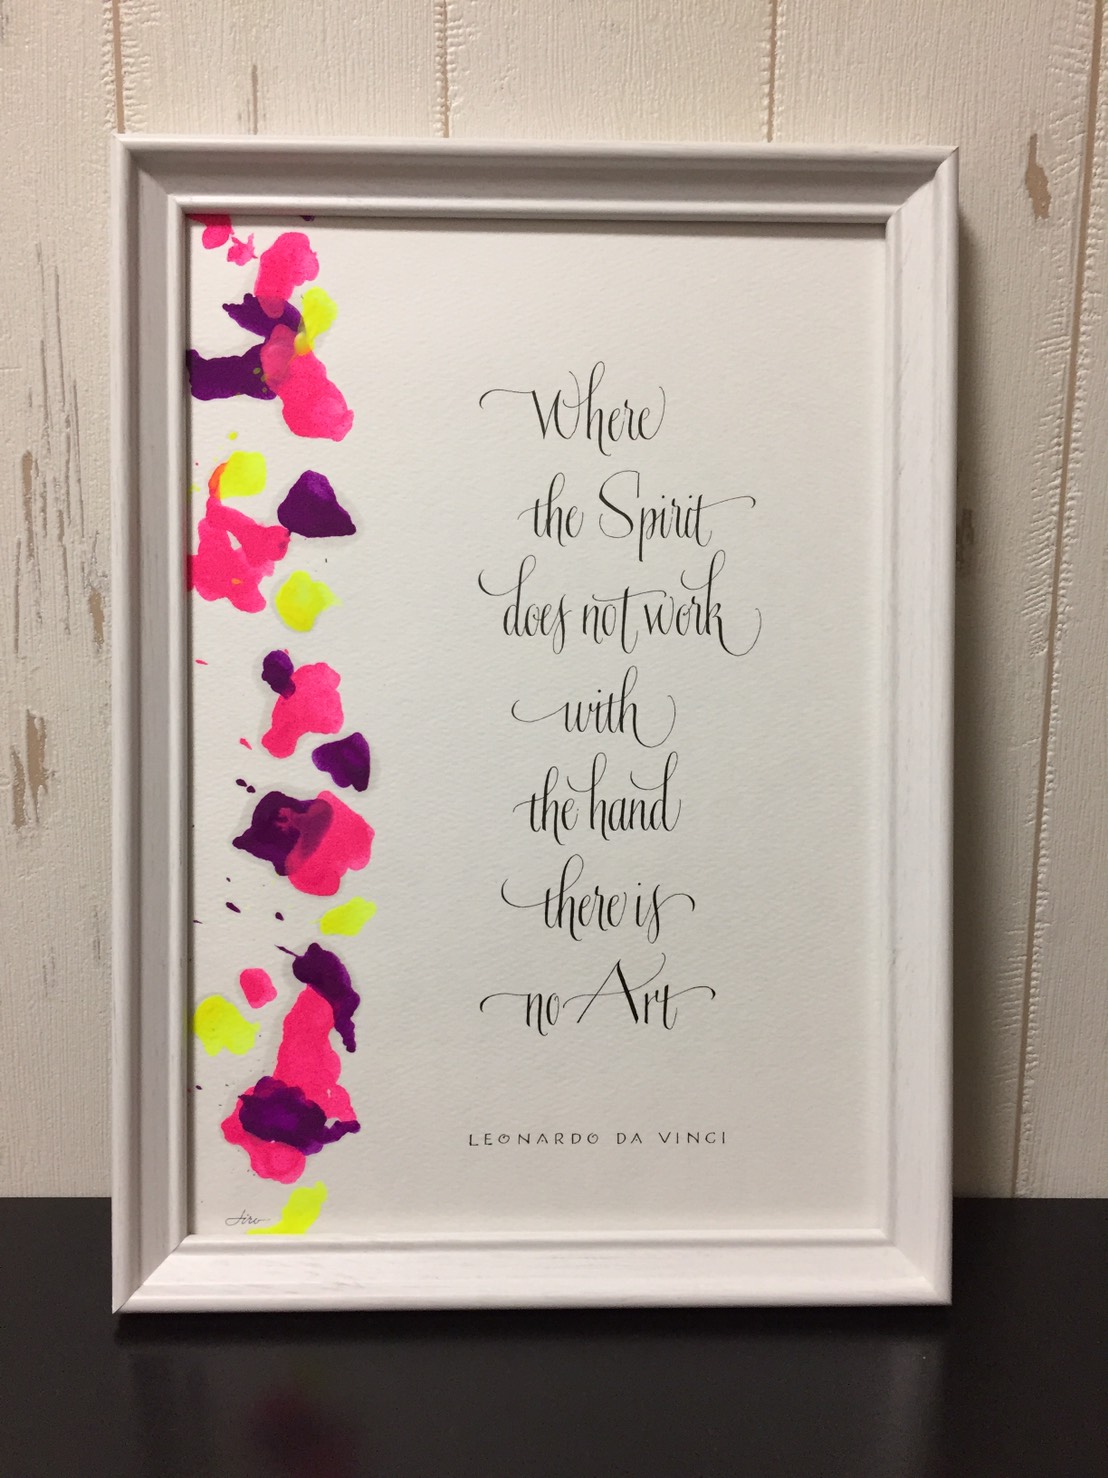 Where
the Spirit
does not work
with
the hand
there is
no Art
LEONARDO DA VINCI